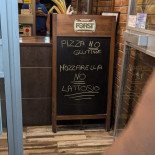 FORST
PIZZA NO
GLUTINE
MOZZARELLA
NO
LATTOSIO